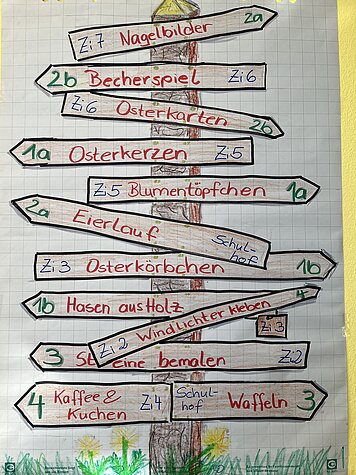 Zi 7 Nagelbilder 2a
2b Becherspiel Zi 6
Zi 6 Osterkarten 2b
1a Osterkerzen Zi 5
Zi 5 Blumentöpfchen 1a
2a Eierlauf Schul-
hof
Zi 3 Osterkörbchen 1b
1b Hasen aus Holz
Zi 3
Zi 2 Windlichter kleben 4
3 Steine bemalen Zi 2
4 Kaffee &
Kuchen Zi 4
Schul-
hof Waffeln 3